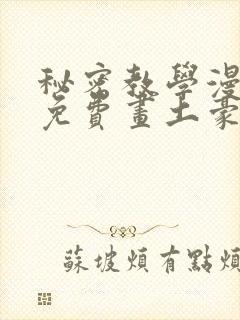 秘密教學漫
免費畫土豪
蘇坡煩有點煩